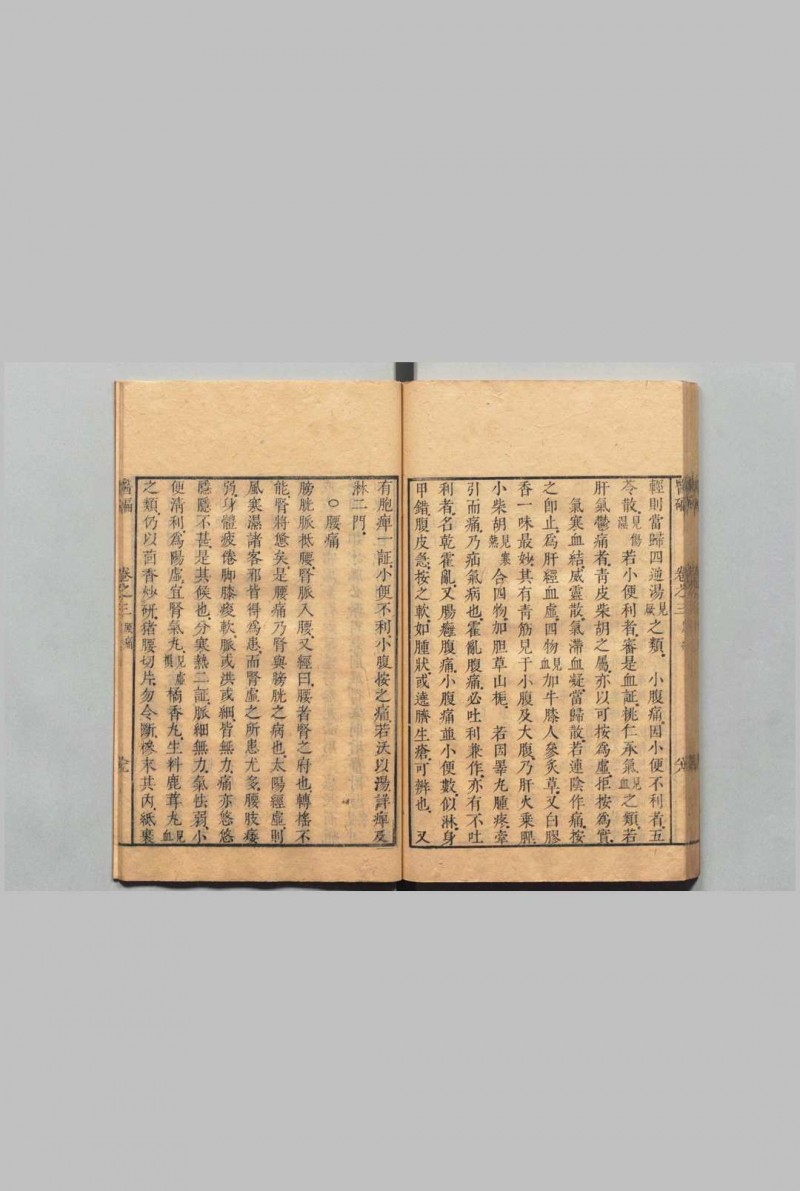 輕則當歸四逆湯見厥之類　小腹痛因小便不利者五
苓散見傷濕若小便利者審是血証桃仁承氣見血之類若
肝氣鬱痛者青皮柴胡之屬亦以可按爲虛拒按爲實
氣寒血結威靈散氣滯血凝當歸散若連陰作痛按
之卽止爲肝經血虛四物見血加牛膝人參炙草又白膠
香一味最妙其有青筋見于小腹及大腹乃肝火乗脾
小柴胡見寒熱合四物加胆草山梔　若因睪丸腫疼牽
引而痛乃疝氣病也霍亂腹痛必吐利兼作亦有不吐
利者名乾霍亂又腸癰腹痛小腹痛並小便數似淋身
甲錯腹皮急按之軟如腫狀或遶臍生瘡可辨也　又
醫碥
卷之三
有胞痺一証小便不利小腹按之痛若沃以湯詳痺及
淋二門
○腰痛
膀胱脈抵腰腎脈入腰又經曰腰者腎之府也轉搖不
能腎將憊矣是腰痛乃腎與膀胱之病也太陽經虛則
風寒濕諸客邪皆得爲患而腎虛之所患尤多腰肢痿
弱身體疲倦脚膝痠軟脈或洪或細皆無力痛亦悠悠
隱隱不甚是其候也分寒熱二証脈細無力氣怯弱小
便清利爲陽虛宜腎氣丸見虛損橘香丸生料鹿茸丸見血
之類仍以茴香炒研猪腰切片勿令斷糝末其內紙裹
卷之三　腰痛